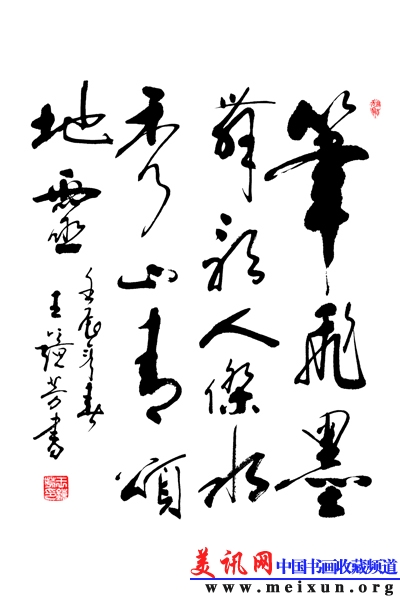 筆飛墨
舞歌人傑水
秀山青頌
地靈
壬辰年春
王蘊芳書
美讯网 中国书画收藏频道
www.meixun.org